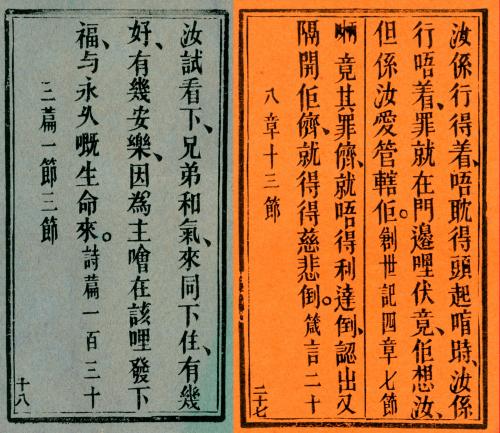 汝試看下、兄弟和氣、來同下住、有幾
好、有幾安樂、因為主噲在該哩發下
福、与永久嘅生命來。詩篇一百三十
三篇一節三節
十八
汝係行得着、唔耽得頭起喑時、汝係
行唔着、罪就在門邊哩伏竟、佢想汝、
但係汝愛管轄佢。創世記四章七節
竟其罪儕、就唔得利達倒、認出又
隔開佢儕、就得得慈悲倒。箴言二十
八章十三節
二十七